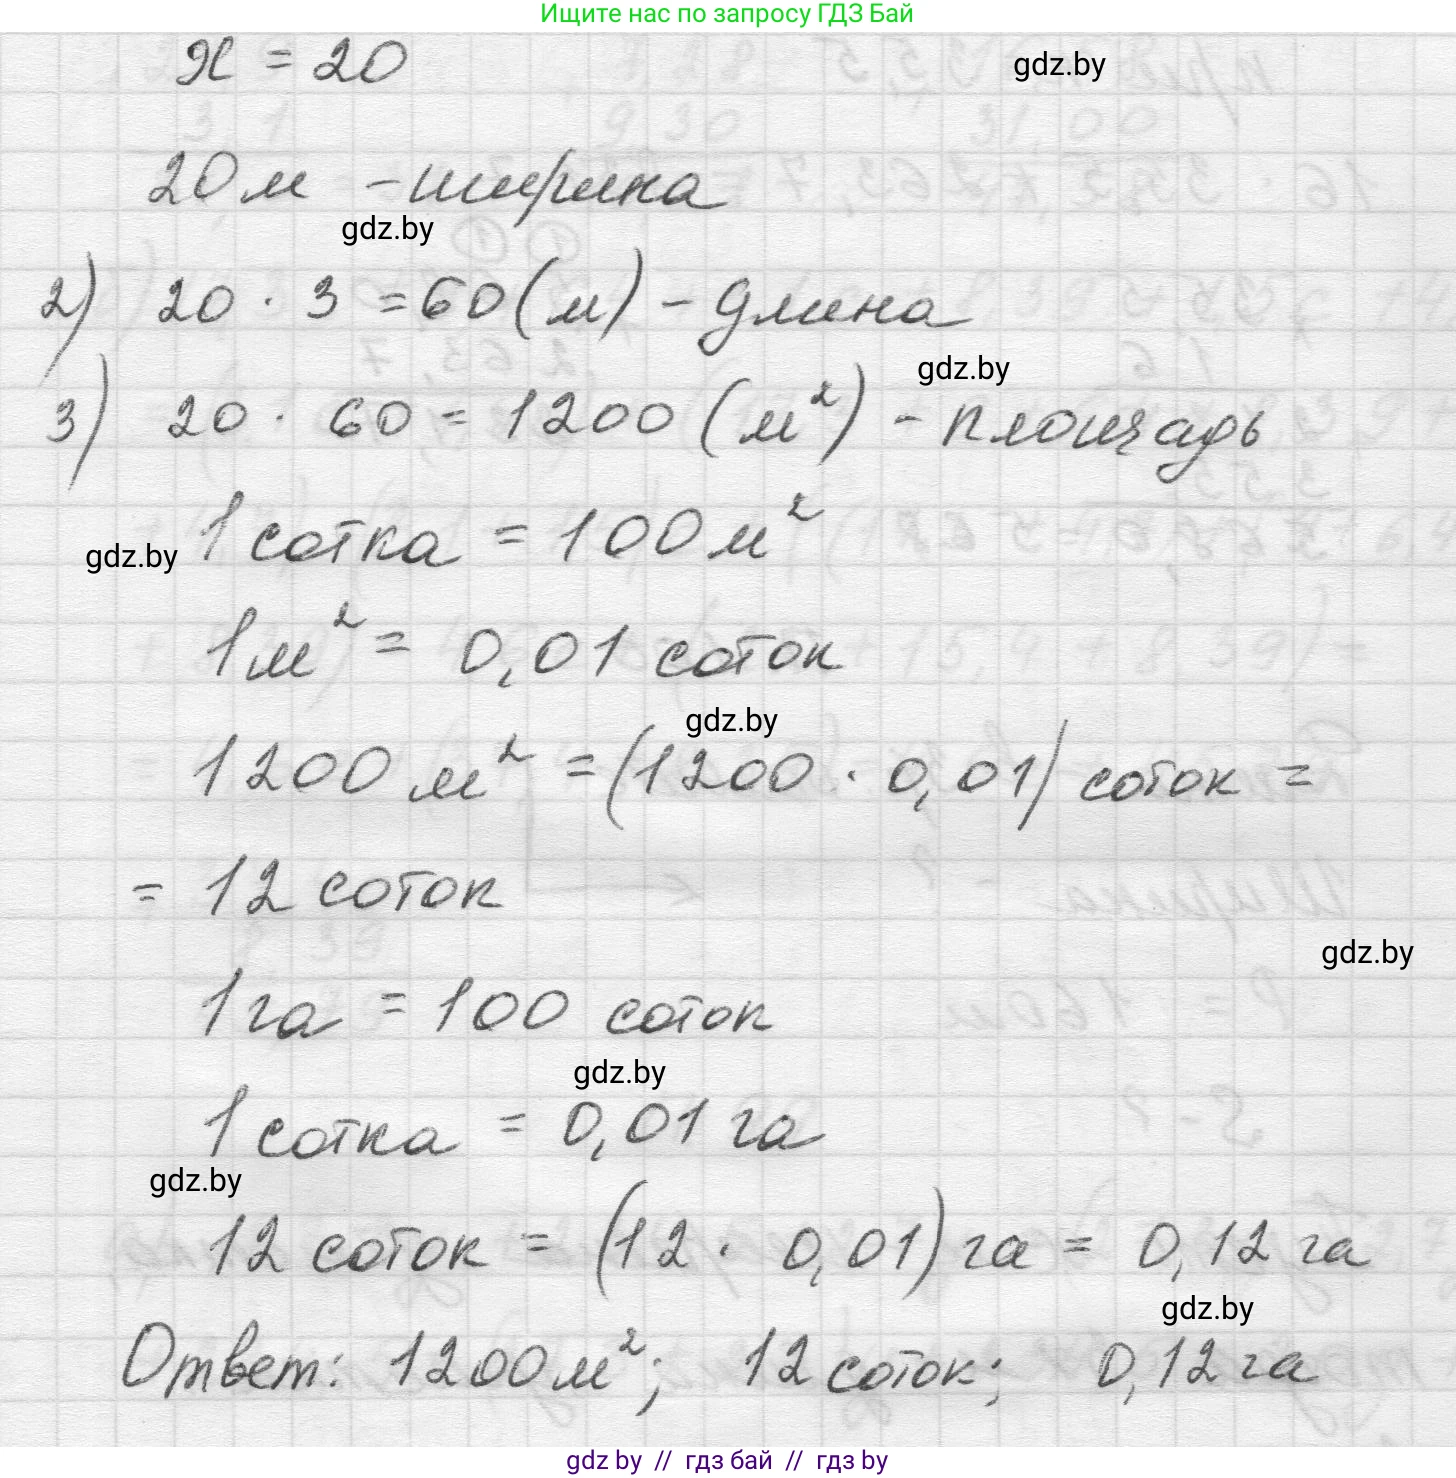 Ищите нас по запросу ГДЗ Бай
x = 20
gdz.by
20 м - ширина
gdz.by
2) 20 · 3 = 60 (м) - длина
gdz.by
3) 20 · 60 = 1200 (м²) - площадь
1 сотка = 100 м²
gdz.by
1 м² = 0,01 соток
gdz.by
1200 м² = (1200 · 0,01) соток =
= 12 соток
gdz.by
1 га = 100 соток
gdz.by
1 сотка = 0,01 га
gdz.by
12 соток = (12 · 0,01) га = 0,12 га
gdz.by
Ответ: 1200 м²; 12 соток; 0,12 га
gdz by // гдз бай // гдз by